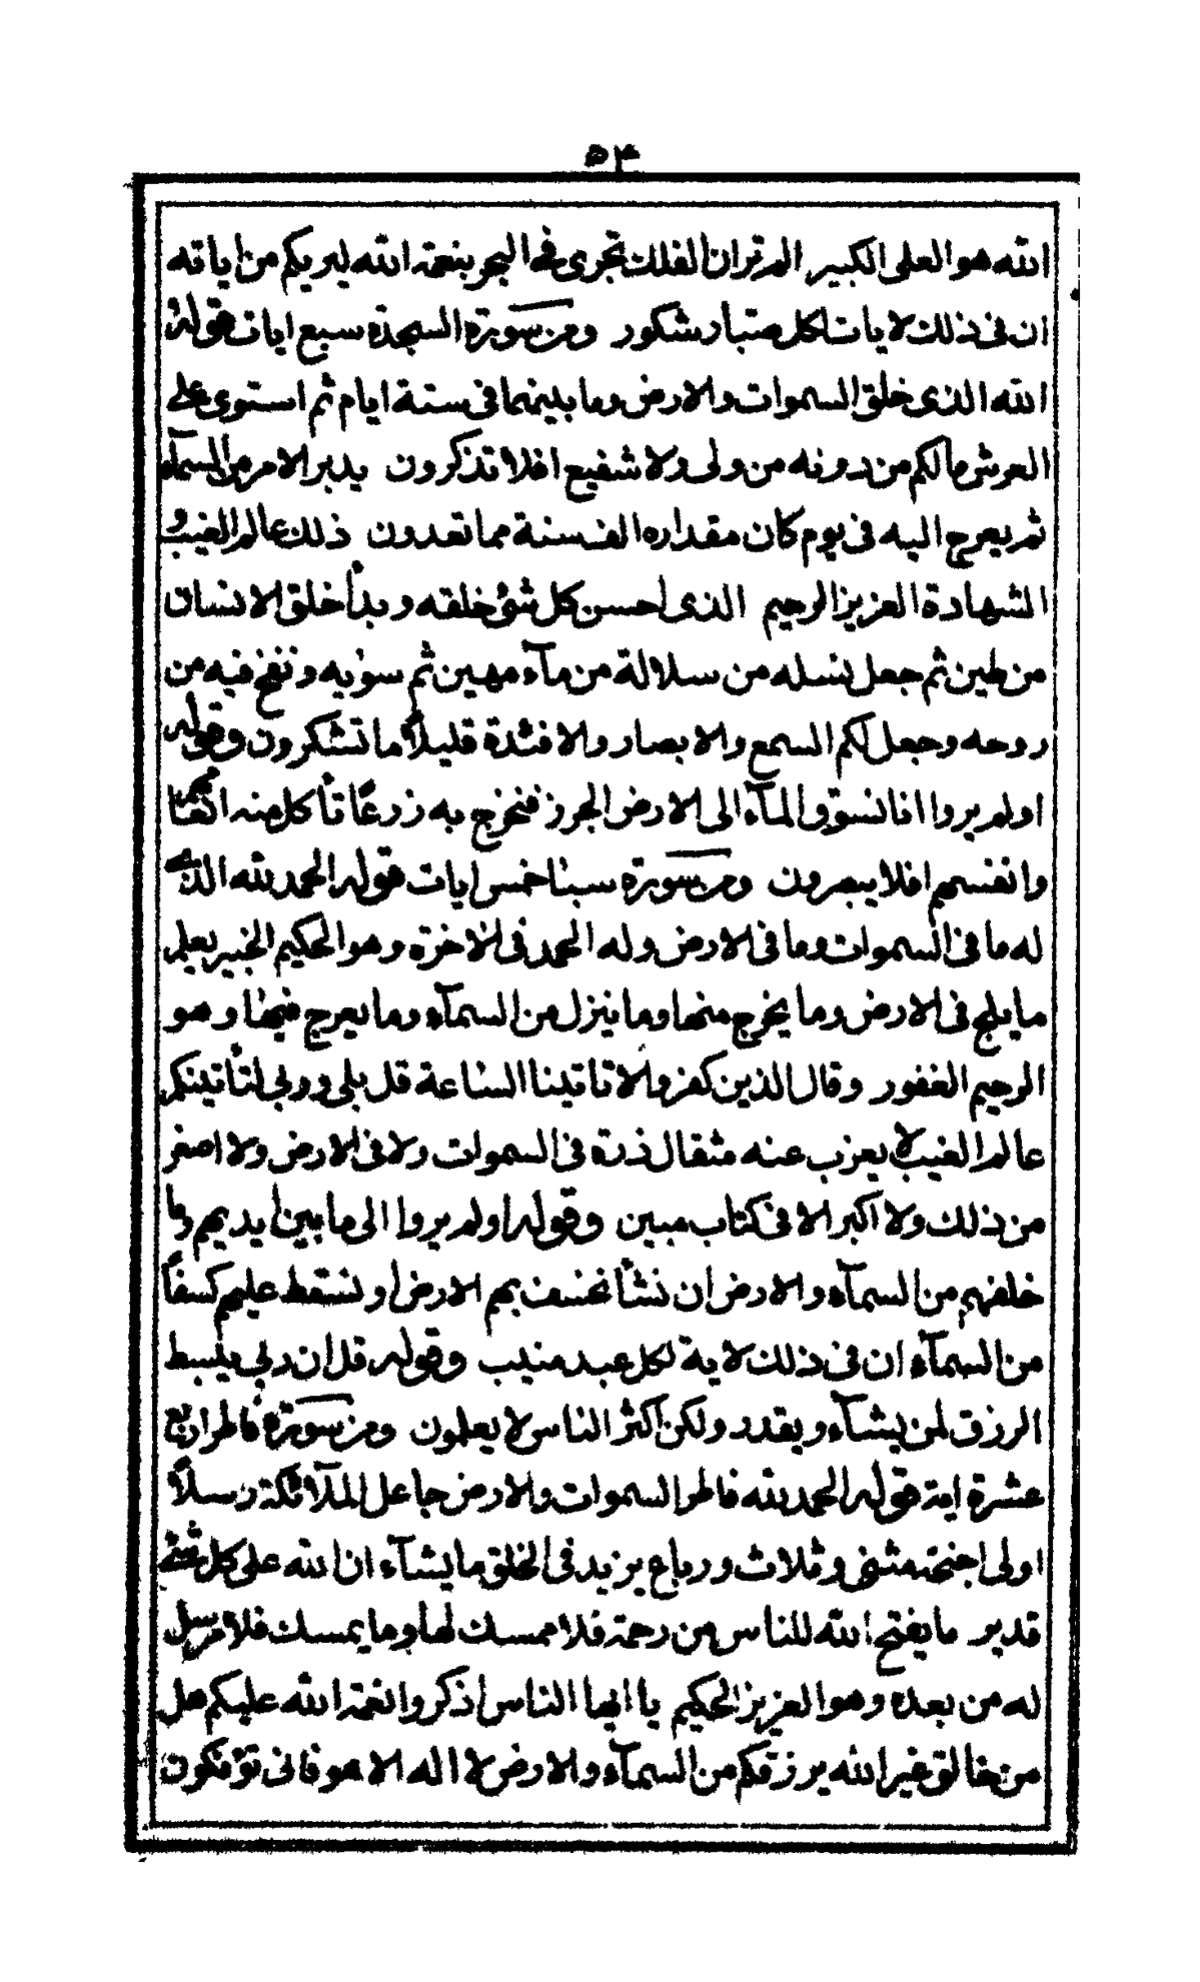 ٥٣
الله هو العلى الكبير الم تر ان الفلك تجرى فى البحر بنعمة الله ليريكم من اياته
ان فى ذلك لايات لكل صبار شكور ومن سورة السجدة سبع ايات قوله
الله الذى خلق السموات والارض وما بينهما فى ستة ايام ثم استوى على
العرش مالكم من دونه من ولى ولا شفيع افلا تذكرون يدبر الامر من السمآء
ثم يعرج اليه فى يوم كان مقداره الف سنة مما تعدون ذلك عالم الغيب و
الشهادة العزيز الرحيم الذى احسن كل شئ خلقه وبدأ خلق الانسان
من طين ثم جعل نسله من سلالة من مآء مهين ثم سويه ونفخ فيه من
روحه وجعل لكم السمع والابصار والافئدة قليلاً ما تشكرون وقوله
اولم يروا انا نسوق المآء الى الارض الجرز فنخرج به زرعًا تأكل منه انعامهم
وانفسهم افلا يبصرون ومن سورة سبا خمس ايات قوله الحمد لله الذى
له ما فى السموات وما فى الارض وله الحمد فى الاخرة وهو الحكيم الخبير يعلم
ما يلج فى الارض وما يخرج منها وما ينزل من السمآء وما يعرج فيها وهو
الرحيم الغفور وقال الذين كفروا لا تاتينا الساعة قل بلى وربى لتأتينكم
عالم الغيب لا يعزب عنه مثقال ذرة فى السموات ولا فى الارض ولا اصغر
من ذلك ولا اكبر الا فى كتاب مبين وقوله اولم يروا الى ما بين ايديهم وما
خلفهم من السمآء والارض ان نشأ نخسف بهم الارض او نسقط عليهم كسفاً
من السمآء ان فى ذلك لاية لكل عبد منيب وقوله قل ان ربى يبسط
الرزق لمن يشآء ويقدر ولكن اكثر الناس لا يعلمون ومن سورة فاطر اربع
عشرة اية قوله الحمد لله فاطر السموات والارض جاعل الملآئكة رسلاً
اولى اجنحة مثنى وثلاث ورباع يزيد فى الخلق ما يشآء ان الله على كل شئ
قدير ما يفتح الله للناس من رحمة فلا ممسك لها وما يمسك فلا مرسل
له من بعده وهو العزيز الحكيم يا ايها الناس اذكروا نعمة الله عليكم هل
من خالق غير الله يرزقكم من السمآء والارض لا اله الا هو فانى تؤفكون